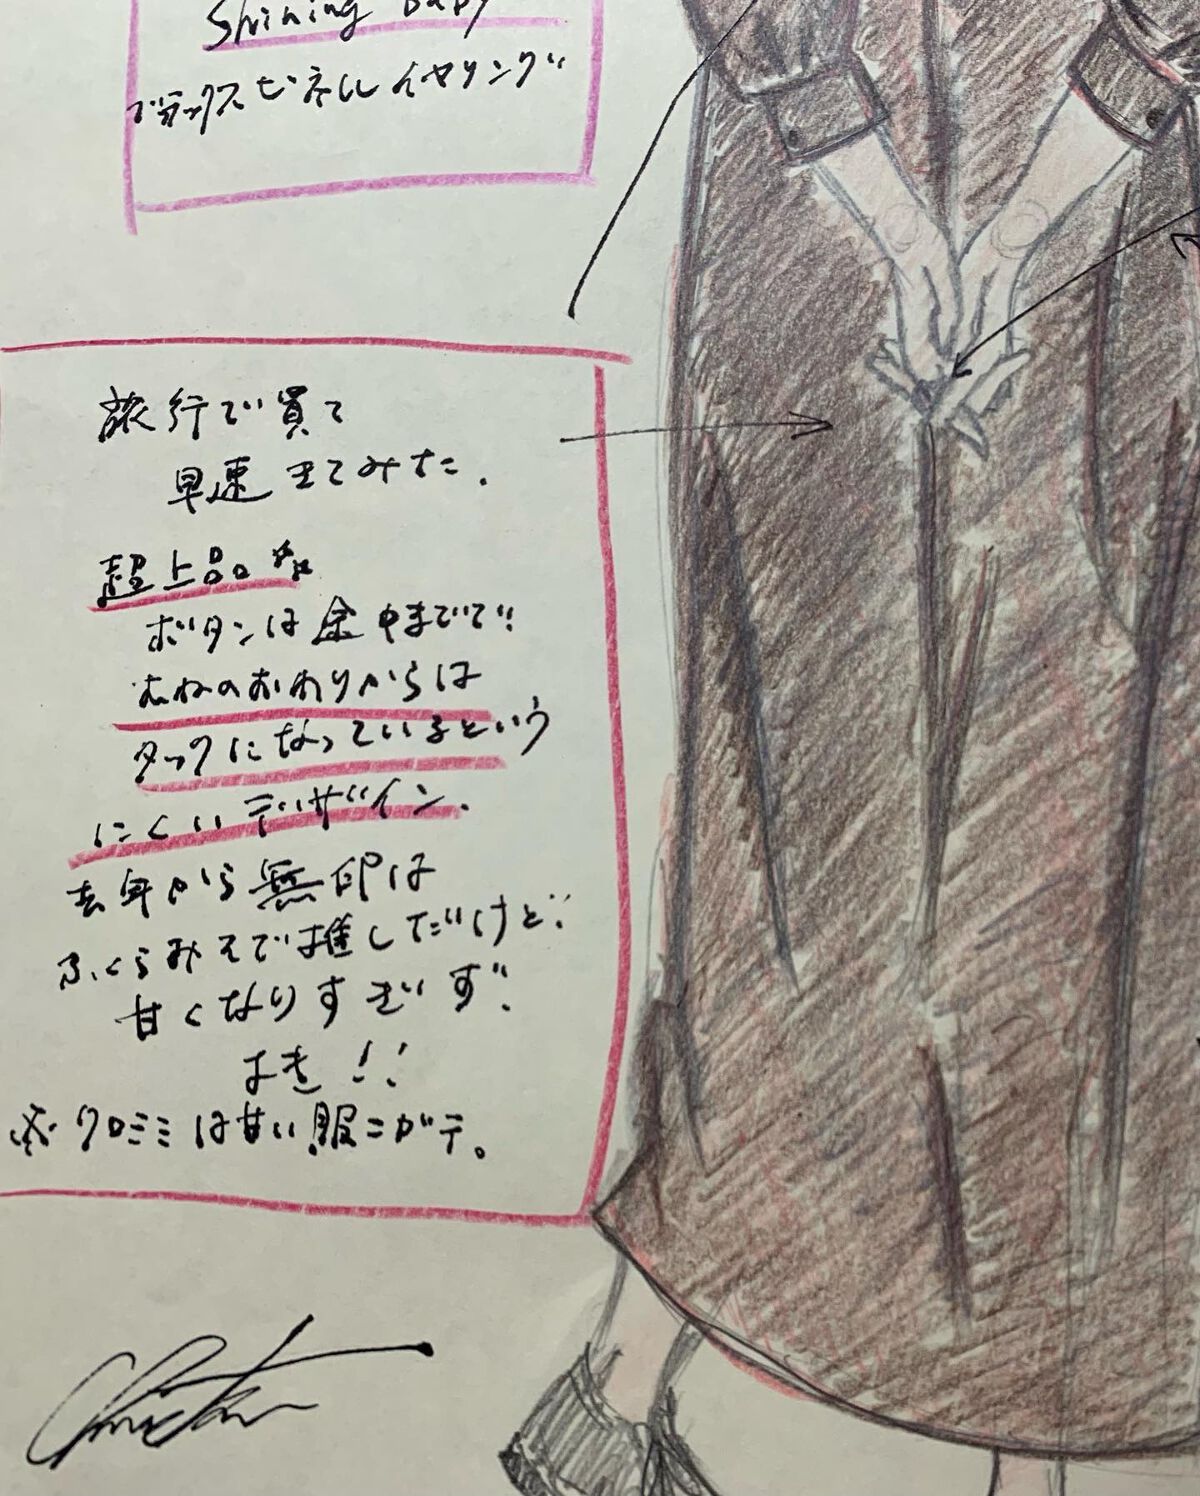 Shining Baby
ブラックスピネルイヤリング
旅行で買て
早速きてみた.
超上品。
ボタンは途中までで!
むねのおわりからは
タックになっているという
にくいデザイン.
去年から無印は
ふくらみそで推しだけど!
甘くなりすぎず!
よき!!
※クロミミは甘い服ニガテ。